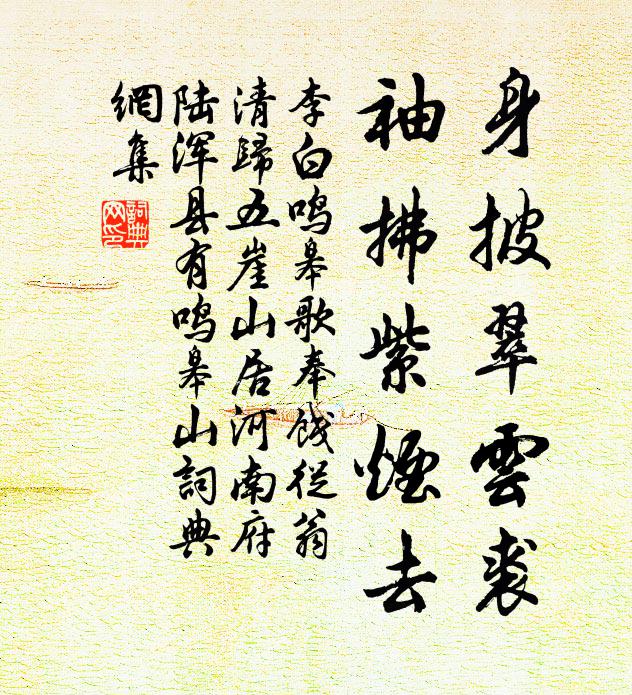 身披翠雲裘
袖拂紫煙去
李白鸣皋歌奉餞從翁
清歸五崖山居河南府
陆浑县有鸣皋山詞典
網集
詞典
网印